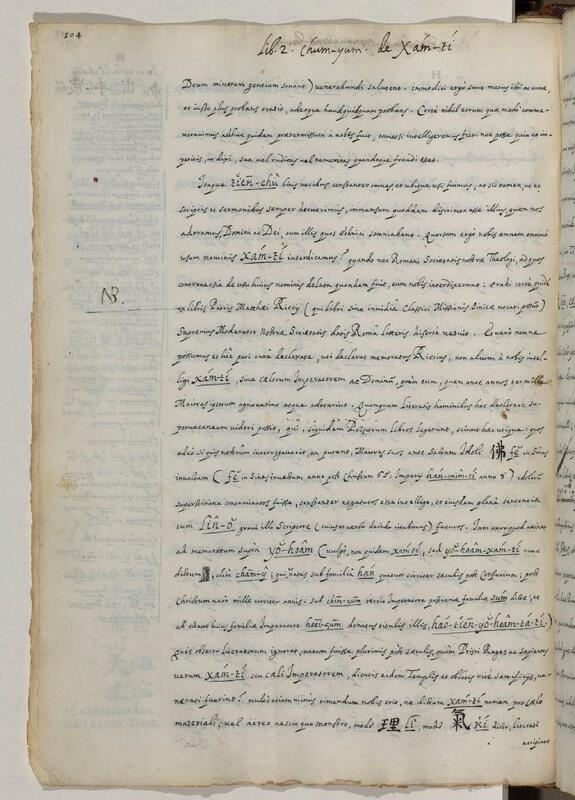 104
lib. 2. Chum-yum. de Xám-tí
Deum minerum gencium sonant) venerabundi salutent. immodici ergò sunt metus isti ac curæ,
et iusto plus probans oratio, adeoque haudquidquam probans. Certè nihil eorum quæ modò comme-
moravimus adhuc quidem prætermissum à nobis fuit, tametsi intelligeremus fieri non posse quin et im-
peritis, ut dixi, sua vel ruditas vel temeritas quandoque fraudi esset.
Itaque tiēn-chù binis vocibus constanter omnes et ubique usi fuimus, ac sic tamen, ut et
scriptis et sermonibus semper docuerimus, immensum quoddam discrimen esse illius, quem nos
adoramus, Domini ac Dei, cum illis quos ethnici somniabant. Quorsum ergò nobis omnem omninò
usum nominis xám-tí interdicamus? quando nec Romani Societatis nostræ Theologi, ad quos
controversia de usu huius nominis delata quondam fuit, eum nobis interdixerunt: eradi certè quidem
NB.
ex libris Patris Matthæi Riccij (qui libri sine invidia Classici Missionis Sinicæ vocari possunt)
Supremus Moderator Nostræ Societatis datis Româ litteris disertè vetuit. Et verò nonne
possumus et hîc pari curâ declarare, uti declarat memoratus Riccius, non alium à nobis intel-
ligi xám-tí, sive cælorum Imperatorem ac Dominum, quàm eum, quem ante annos ter mille
Maiores ipsorum agnoverint atque adorarint. Quamquam literatis hominibus hoc declarare su-
pervacaneum videri possit, qui, siquidem Priscorum libros legerunt, sciunt hæc utique: quos
adeò si quis nostrûm interrogaverit, an putent, Maiores suos ante Sectam Idoli 佛 fĕ in Sinas
invectam (fĕ in Sinas invectum anno post Christum 65. Imperij hán-mîm-tí anno 8) idolorum
superstitione contaminatos fuisse, constanter negaturos esse intelligo, et eiusdem planè sententiæ
cum lîn-ò gravi illi Scriptore (cuius et verba deinde citabimus) futuros. Jam verò quod attinet
ad memoratum suprà yŏ-hoâm (vulgò, non quidem xám tí, sed yŏ-hoâm-xám-tí nunc
dictum, olim chām-ŷ; qui natus sub familiâ hán quatuor circiter sæculis post Confucium; post
Christum verò mille circiter annis: sub chīn-çūm tertio Imperatore postrema familia súm dicta, et
ab octavo huius familiæ Imperatore hoēi-çūm donatus titulis illis, háo-tiēn-yŏ-hoâm-tá-tí.)
Quis obsecro literatorum ignoret, natum fuisse plurimis post sæculis, quàm Prisci Reges ac Sapientes
verum xám-tí seu cæli Imperatorem, dicatis eidem Templis et oblatis ritè Sacrificijs, ve-
nerati fuerint? multò etiam minùs timendum nobis erit, ne dictum xám-tí nomen pro cælo
materiali; vel aëreo nescio quo monstro, modò 理 lì, modò 氣 kí dicto, literati
accipiant